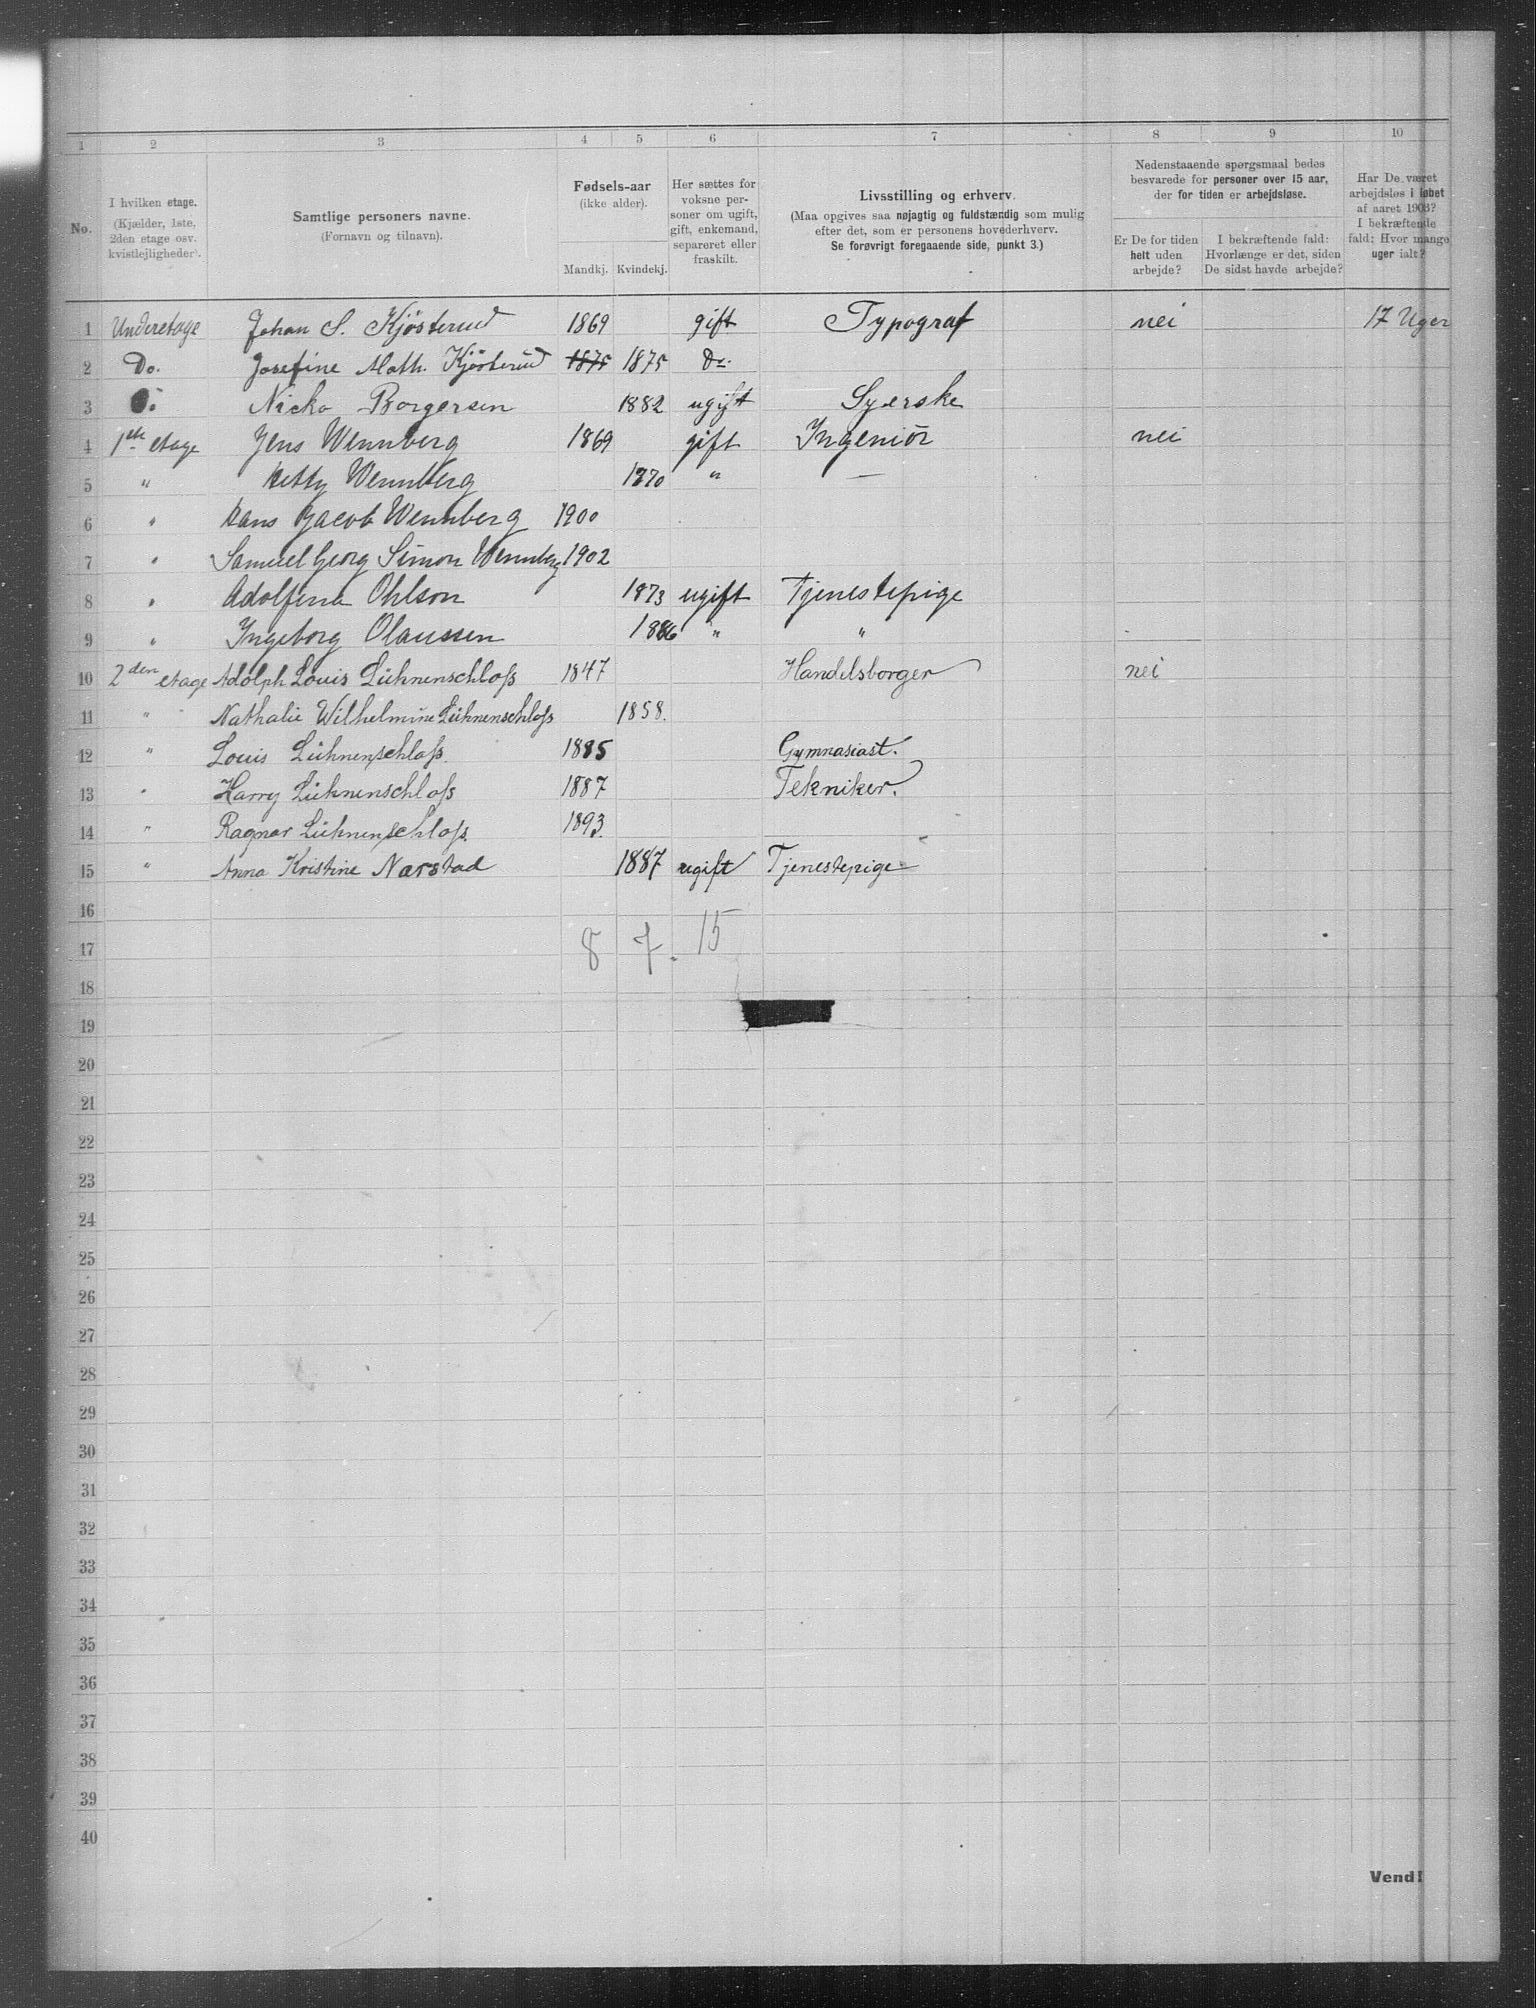 1 2 3 4 5 6 7 8 9 10
No.
I hvilken etage.
(Kjælder, 1ste,
2den etage osv.
kvistlejligheder).
Samtlige personers navne.
(Fornavn og tilnavn).
Fødsels-aar
(ikke alder).
Mandkj. Kvindekj.
Her sættes for
voksne per-
soner om ugift,
gift, enkemand,
separeret eller
fraskilt.
Livsstilling og erhverv.
(Maa opgives saa nøjagtig og fuldstændig som mulig
efter det, som er personens hovederhverv.
Se forøvrigt foregaaende side, punkt 3.)
Nedenstaaende spørgsmaal bedes
besvarede for personer over 15 aar,
der for tiden er arbejdsløse.
Er De for tiden
helt uden
arbejde?
I bekræftende fald:
Hvorlænge er det, siden
De sidst havde arbejde?
Har De været
arbejdsløs i løbet
af aaret 1903?
I bekræftende
fald: Hvor mange
uger ialt?
1 Underetage Johan S. Kjösterud 1869 gift Typograf nei 17 Uger
2 Do. Josefine Math. Kjösterud 1875 1875 Do.
3 Do. Nicka Borgersen 1882 ugift Syerske
4 1ste etage Jens Wennberg 1869 gift Ingeniör nei
5 " Hetty Wennberg 1870 " —
6 " Hans Jacob Wennberg 1900
7 " Samuel Georg Simon Wennberg 1902
8 " Adolfina Ohlson 1873 ugift Tjenestepige
9 " Ingeborg Olaussen 1886 " "
10 2den etage Adolph Louis Lühnenschloß 1847 Handelsborger nei
11 " Nathalie Wilhelmine Lühnenschloß 1858.
12 " Louis Lühnenschloß. 1885 Gymnasiast.
13 " Harry Lühnenschloß 1887 Tekniker.
14 " Ragnar Lühnenschloß. 1893.
15 " Anna Kristine Narstad 1887 ugift Tjenestepige
16
17 8 7. 15
18
19
20
21
22
23
24
25
26
27
28
29
30
31
32
33
34
35
36
37
38
39
40
Vend!